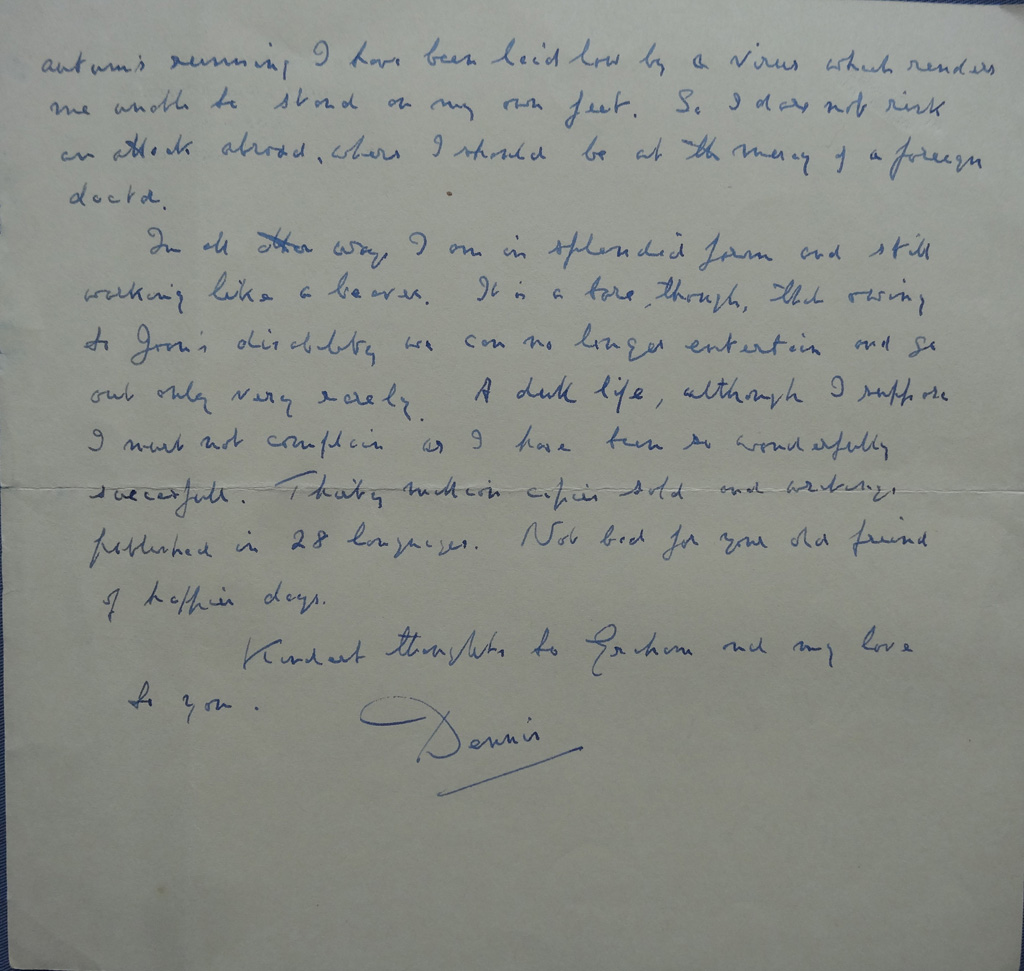 autumn's running I have been laid low by a virus which renders
me unable to stand on my own feet. So I dare not risk
an attack abroad, where I should be at the mercy of a foreign
doctor.
In all other ways I am in splendid form and still
working like a beaver. It is a bore, though, that owing
to Joan's disability we can no longer entertain and go
out only very rarely. A dull life, although I suppose
I must not complain as I have been so wonderfully
successful. Thirty million copies sold and writings
published in 28 languages. Not bad for your old friend
of happier days.
Kindest thoughts to Graham and my love
to you.
Dennis